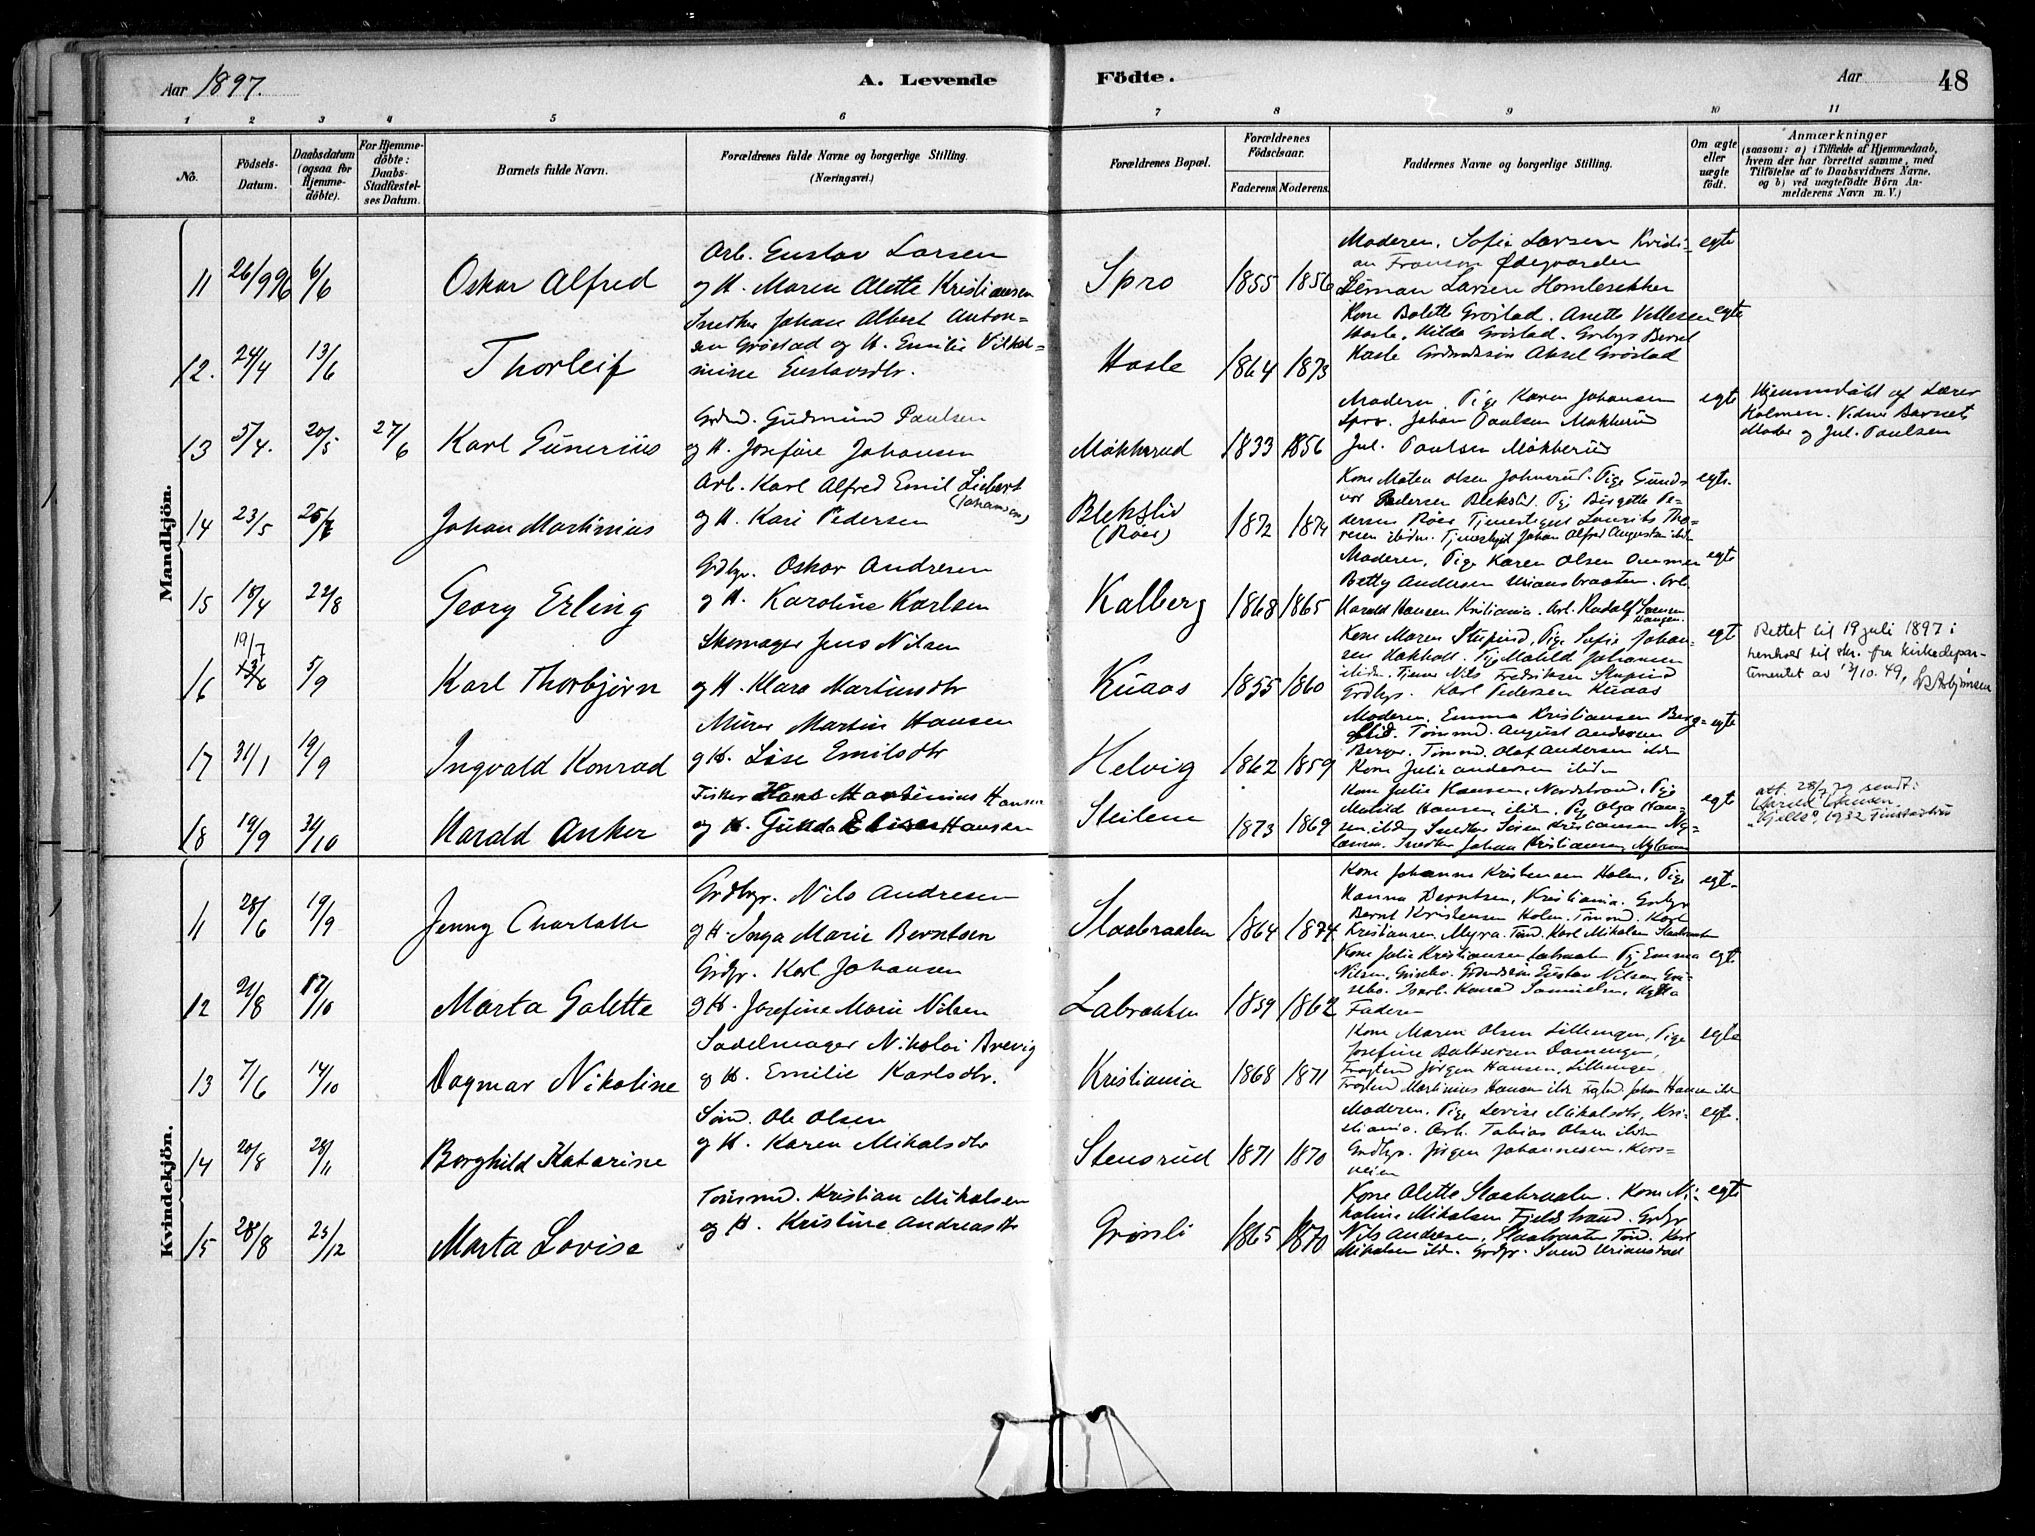 Aar 1897.
A. Levende Födte.
Aar 48
1 2 3 4 5 6 7 8 9 10 11
No.
Födsels-Datum.
Daabsdatum (ogsaa for Hjemme-döbte).
For Hjemme-döbte: Daabs-Stadfæstel-ses Datum.
Barnets fulde Navn.
Forældrenes fulde Navne og borgerlige Stilling. (Næringsvei.)
Forældrenes Bopæl.
Forældrenes Födselsaar.
Faderens. Moderens.
Faddernes Navne og borgerlige Stilling.
Om ægte eller uægte födt.
Anmærkninger
(saasom: a) i Tilfælde af Hjemmedaab, hvem der har forrettet samme, med Tilföielse af to Daabsvidners Navne, og b) ved uægtefödte Börn An-melderens Navn m. V.)
Mandkjön.
11 26/9 96 6/6 Oskar Alfred
Arb. Gustav Larsen
og H. Maren Alette Kristiansen
Spro 1855 1856
Moderen, Sofie Larsen Kristi-
an Fransen Ødegaarden
Larsen Homlesekken
egte
12. 24/4 13/6 Thorleif
Snedker Johan Albert Anton-
sen Gröstad og H. Emilie Vilhel-
mine Gustavsdtr.
Hasle 1864 1873
Kone Bolette Gröstad. Anette Vellesen
Hasle, Hilda Gröstad. Grbygs Bernt
Hasle Grdmdssön Aksel Gröstad
egte
13 5/4. 20/5 27/6 Karl Gunerius
Grdmd. Gudmund Paulsen
og H. Josefine Johansen
Mökkerud 1833 1856
Moderen, Pige Karen Johansen
Spro. Johan Paulsen Mökkerud
Jul. Paulsen Mökkerud
egte
Hjemmedöbt af Lærer
Holmen. Vidne Barnets
Moder og Jul. Paulsen
14 23/5 Johan Martinius
Arb. Karl Alfred Emil Liebert
(Johansen)
og H. Kari Pedersen
Blekslid
(Roer)
1872 1874
Kone Maten Olsen Johnsrud. Pige Gund-
vor Pedersen Blekslid. Pige Birgitte Pe-
dersen Roer Tjenestegut Laurits Tho-
resen ibidm. Tjenestegut Johan Alfred Augustsen ibidm
egte.
15 18/4 22/8 Georg Erling
Grdbgr. Oskar Andresen
og H. Karoline Karlsen
Kalberg 1868 1865
Moderen, Pige Karen Olsen Ommen
Betty Andersen Uransbraaten. Arb.
Harald Hansen Kristiania. Arb. Rudolf Larsen
Haugen.
egte
16 19/7 5/9 Karl Thorbjörn
Skomager Jens Nilsen
og H. Klara Martinsdtr
Kuaas 1855 1860
Kone Maren Stupind, Pige Sofie Johan-
sen Kokholl. Pige Matild Johansen
ibidm. Tjener Nils Fredriksen Stupind
Grdbgr. Karl Pedersen Kuaas
egte
Rettet til 19 juli 1897 i
henhold til skr. fra kirkedepar-
tementet av 13/10. 49,
17 31/1 19/9 Ingvald Konrad
Murer Martin Hansen
og H. Lise Emilsdtr
Helvig 1862 1859
Moderen, Emma Kristiansen Berg-
slid. Tömmd. August Andersen
Berger. Tömmd. Olaf Andersen ibidm
Kone Julie Andersen ibidm
egte
18 19/9 31/10 Harald Anker
Fisker Hans Martinius Hansen
og H. Gunda Elise Hansen
Steilene 1873 1869
Kone Julie Hansen, Nordstrand, Pige
Matild Hansen, ibidm, Pg. Olga Han-
sen ibidm Snedker Sören Kristiansen Ny-
Snedker Johan Kristiansen
egte
att. 28/7 sendt:
Harald Hansen
1932
Kvindekjön.
11 28/6 19/9 Jenny Charlotte
Grdbgr. Nils Andresen
og H. Inga Marie Berntsen
Slaabraaten 1864 1874
Kone Johanne Kristensen Holen, Pige
Hanna Berntsen, Kristiania. Grbgr
Bernt Kristensen Holen. Tömmd. Karl
Kristiansen Myra. Tömd. Karl Mikalsen Slaabraaten
egte
12 21/8 17/10 Marta Galette
Grdbr. Karl Johansen
og H. Josefine Marie Nilsen
Labraaten 1859 1862
Kone Julie Kristiansen Labraaten Pg. Emma
Nilsen, Grisebo. Grdmdssön Gustav Nilsen Gri-
sebo. Konrad Samuelsen, Hytta
Faderen
egte
13 7/6 14/10 Dagmar Nikoline
Sadelmager Nikolai Brevig
og H. Emilie Karlsdtr.
Kristiania 1868 1871
Kone Maren Olsen Lillengen, Pige
Josefine Baltsersen Dammengen,
Fragtmd Jörgen Hansen, Lillengen,
Fragtmd Martinius Hansen ibidm Fragtmd Johan Hansen ibidm
egte
14 20/8 28/11 Borghild Katarine
Sömd. Ole Olsen
og H. Karen Mikalsdtr
Stensrud 1871 1870
Moderen. Pige Lovise Mikalsdtr, Kri-
stiania. Arb. Tobias Olsen ibidm
Grdbgr. Jörgen Johannesen, Kors-
veien
egte.
15 28/8 25/12 Marta Lovise
Tömmd. Kristian Mikalsen
og H. Kristine Andreasdtr
Grönsli 1865 1870
Kone Alette Slaabraaten. Kone Ni-
koline Mikalsen Fjeldstrand. Grbgr
Nils Andresen, Slaabraaten Tömd. Karl
Mikalsen ibidm. Grdgr. Svend Uranstad
egte